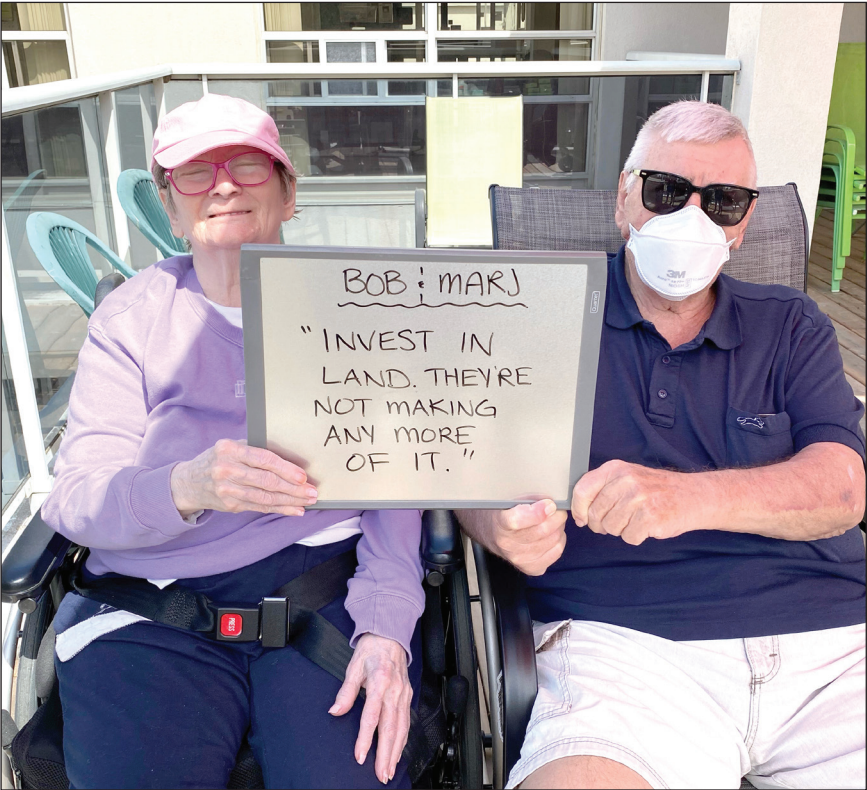 BOB & MARJ
"INVEST IN
LAND. THEY'RE
NOT MAKING
ANY MORE
OF IT."
Quartet
3M
PRESS